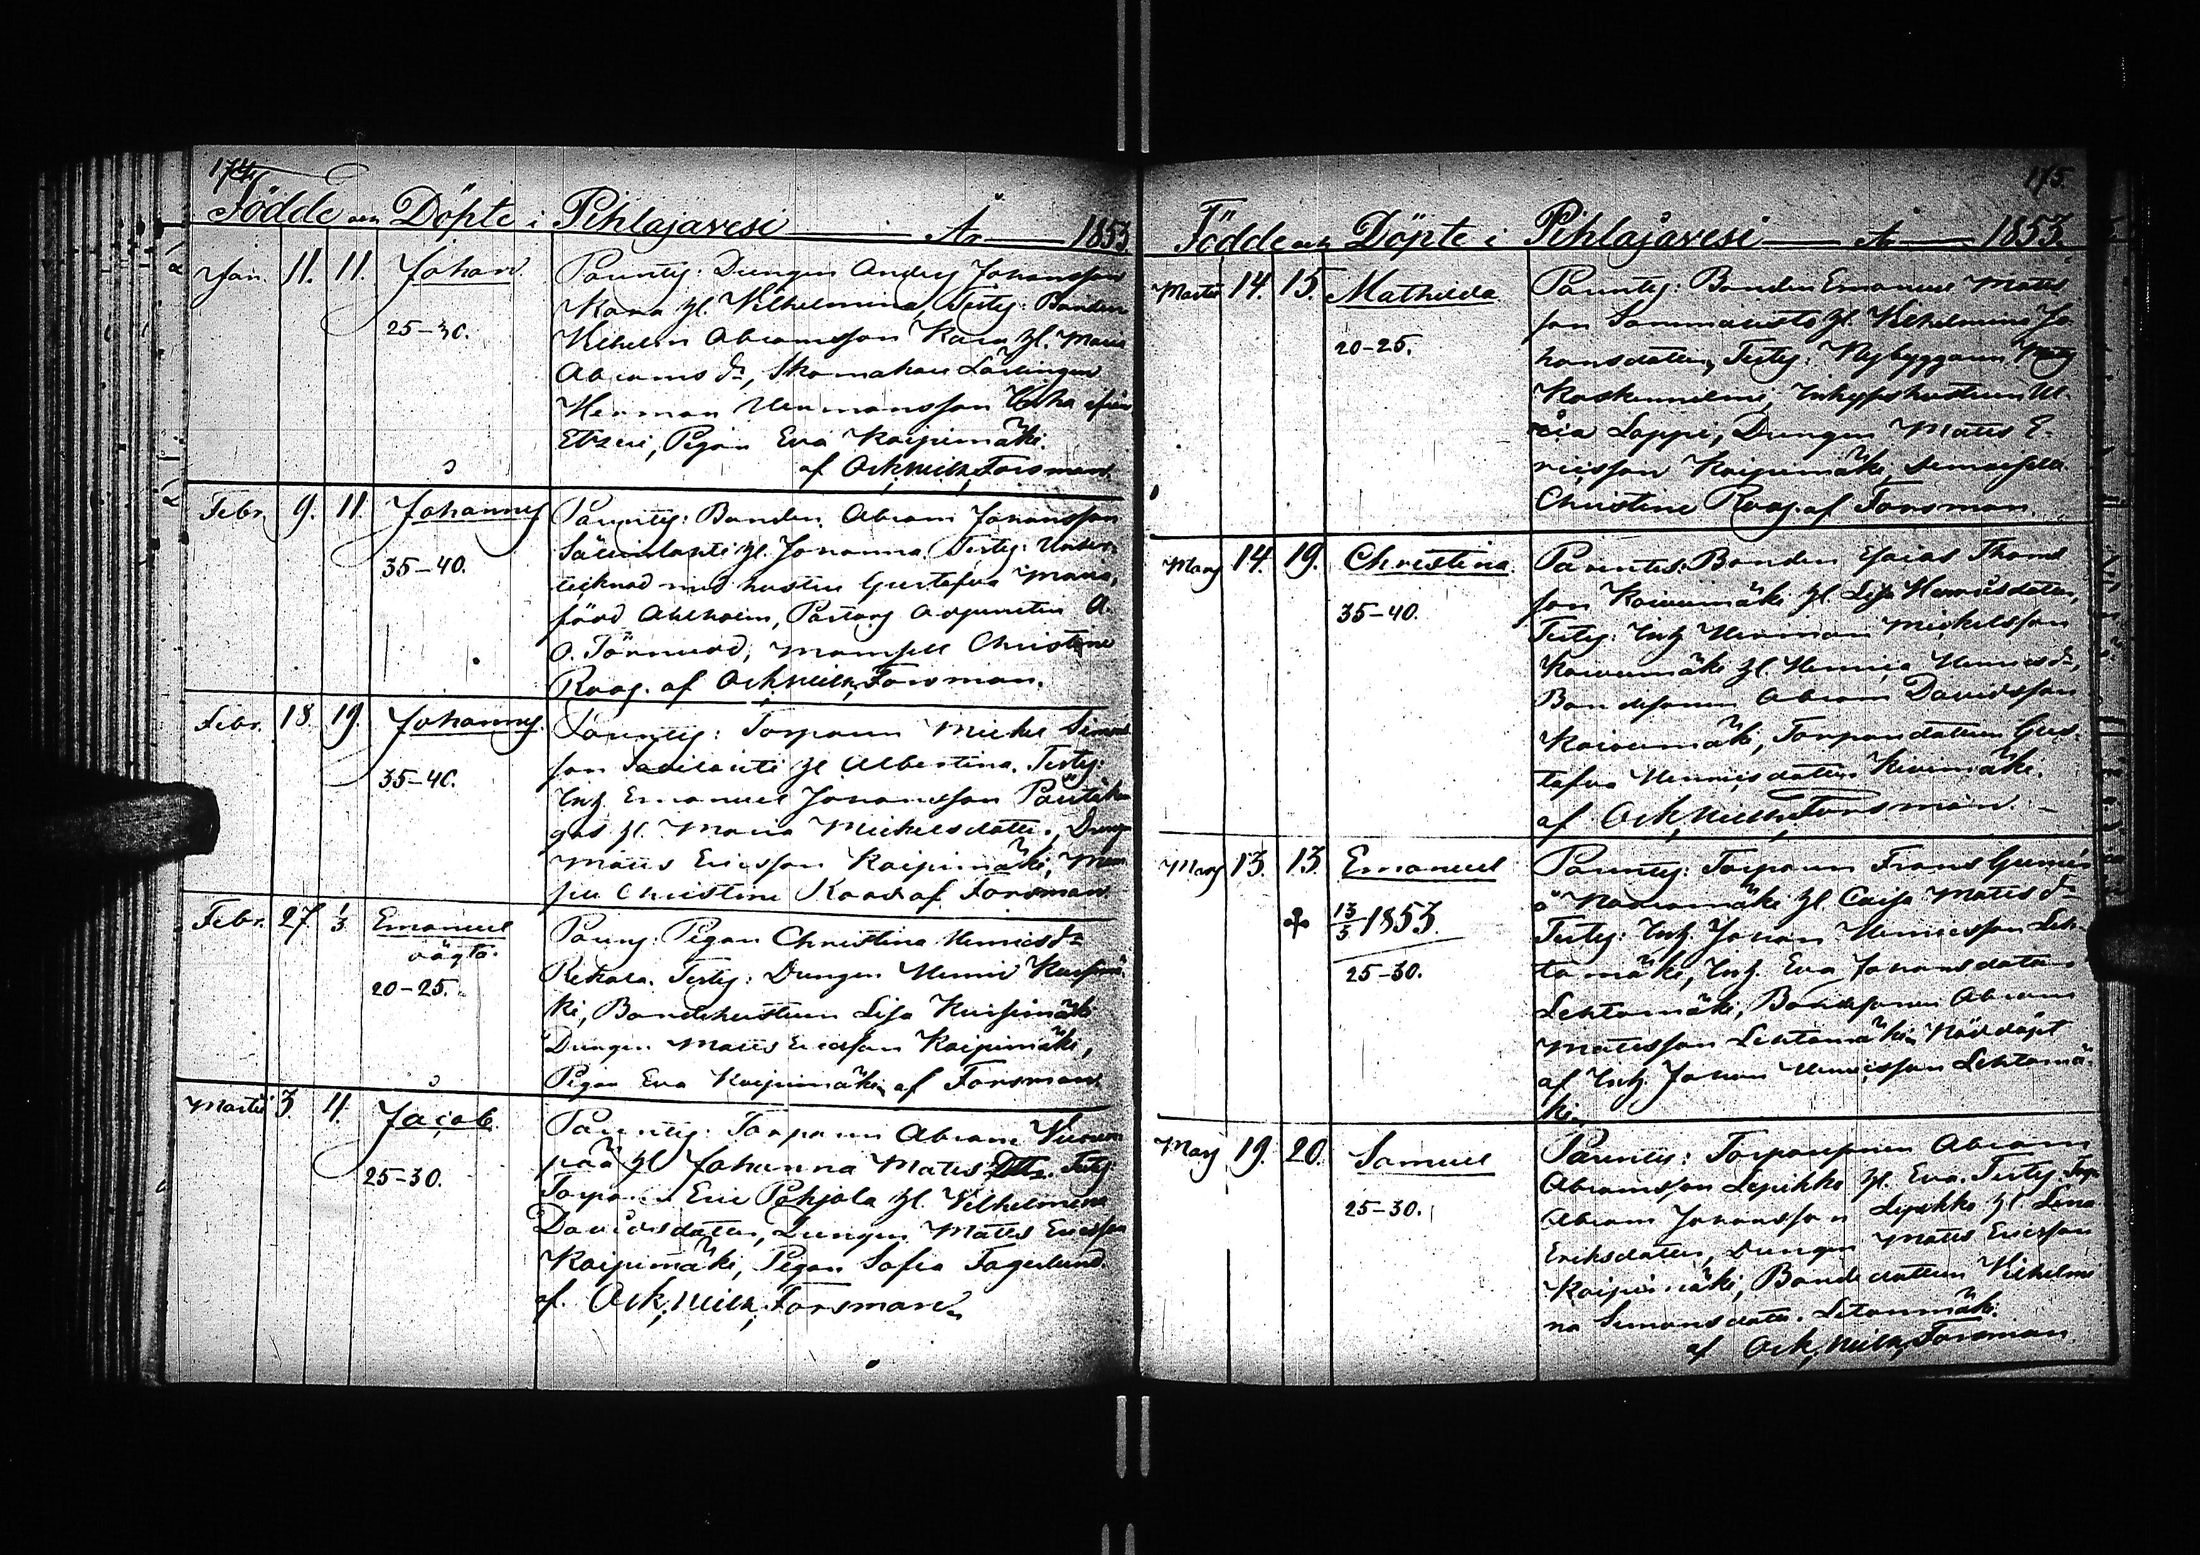 174
Födde och Döpte i Pihlajavesi År 1853
Jan. 11. 11. Johan
25–30.
Parentes: Drengen Anders Johansson
Kara h. Vilhelmina, Testes: Bonden
Vilhelm Abramsson Kara h. Maria
Abrams dr, Skomakare Lärlingen
Herman Hermansson
Etzeri, Pigan Eva Kaipimäki.
af Forsman.
Febr. 9. 11. Johannes
35–40.
Parentes: Bonden Abram Johansson
h. Johanna. Testes: Under-
tecknad med hustru Gustafva Maria,
född Ahlholm, Pastors Adjuncten A.
O. Törnudd, Mamsell Christine
Roos. af Forsman.
Febr. 18. 19. Johannes.
35–40.
Parentes: Torparen Mickel Simons
son h. Albertina. Testes:
Inh. Emanuel Johansson
h. Maria Mickelsdotter, Dreng
Matts Ericsson Kaipimäki, Mam
sell Christine Roos. af Forsman.
Febr. 27. 1/3 Emanuel
oägta.
20–25.
Parens: Pigan Christina Henricsdr
Rekola. Testes: Drengen Henric
ki, Bondehustrun Lisa
Drengen Matts Ericsson Kaipimäki,
Pigan Eva Kaipimäki, af Forsman.
Martii 3. 4. Jacob.
25–30.
Parentes: Torparen Abram
pää h. Johanna Matts Dtr. Testes
Torparen Eric Pohjola h. Vilhelmina
Davidsdotter, Drengen Matts Ericsson
Kaipimäki, Pigan Sofia Fagerlund.
af. Forsman.
175.
Födde och Döpte i Pihlajavesi År 1853.
Martii 14. 15. Mathilda
20–25.
Parentes: Bonden Emanuel Matts
son Sammalisto h. Vilhelmina Jo
hansdotter, Testes: Nybyggaren
Koskenniemi, Inhyseshustrun Ul-
rica Lappi, Drengen Matts E-
ricsson Kaipimäki, Demoiselle
Christine Roos. af Forsman.
Mars 14. 19. Christina.
35–40.
Parentes: Bonden Esaias Thoms
son Koivumäki h. Lisa Henricsdotter,
Testes: Inh. Herman Mickelsson
Koivumäki h. Henrica Henricsdr,
Bondesonen Abram Davidsson
Koivumäki, Torparedottern Gus-
tafva Henricsdotter Kivimäki.
af Forsman.
Mars 13. 13. Emanuel
13/5 1853.
25–30.
Parentes: Torparen Frans
h. Caisa Matts dr
Testes: Inh. Johan Henricsson Leh-
tomäki, Inh. Eva Johansdotter
Lehtomäki, Bondesonen Abram
Mattsson Lehtomäki, Nöddöpt
af Inh. Johan Henricsson Lehtomä-
ki.
Mars 19. 20. Samuel
25–30.
Parentes: Torparesonen Abram
Abramsson Lepikko h. Eva. Testes: Torp.
Abram Johansson Lepikko h. Lena
Eriksdotter, Drengen Matts Ericsson
Kaipimäki, Bondedottern Vilhelmi
na Simonsdotter.
af Forsman.